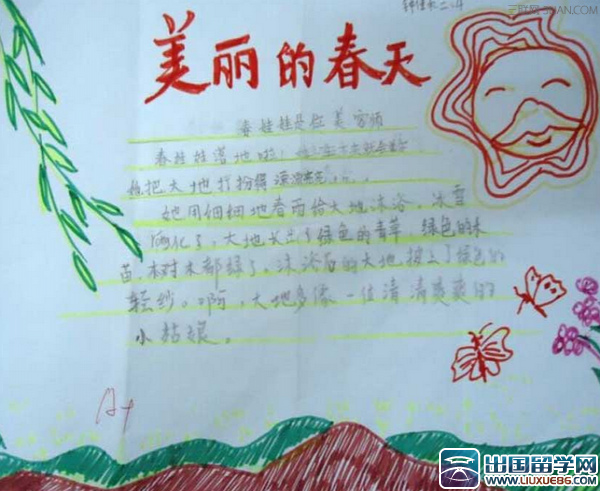 三联网 3LIAN.COM
二.4
美丽的春天
春娃娃是位美容师
春娃娃落地啦！
把大地打扮得漂漂亮亮。
她用细细地春雨给大地沐浴。冰雪
消化了，大地长出了绿色的青草，绿色的禾
苗，树木都绿了。沐浴后的大地披上了绿色的
轻纱。啊，大地多像一位清清爽爽的
小姑娘。
A+
出国留学网
WWW.LIUXUE86.COM